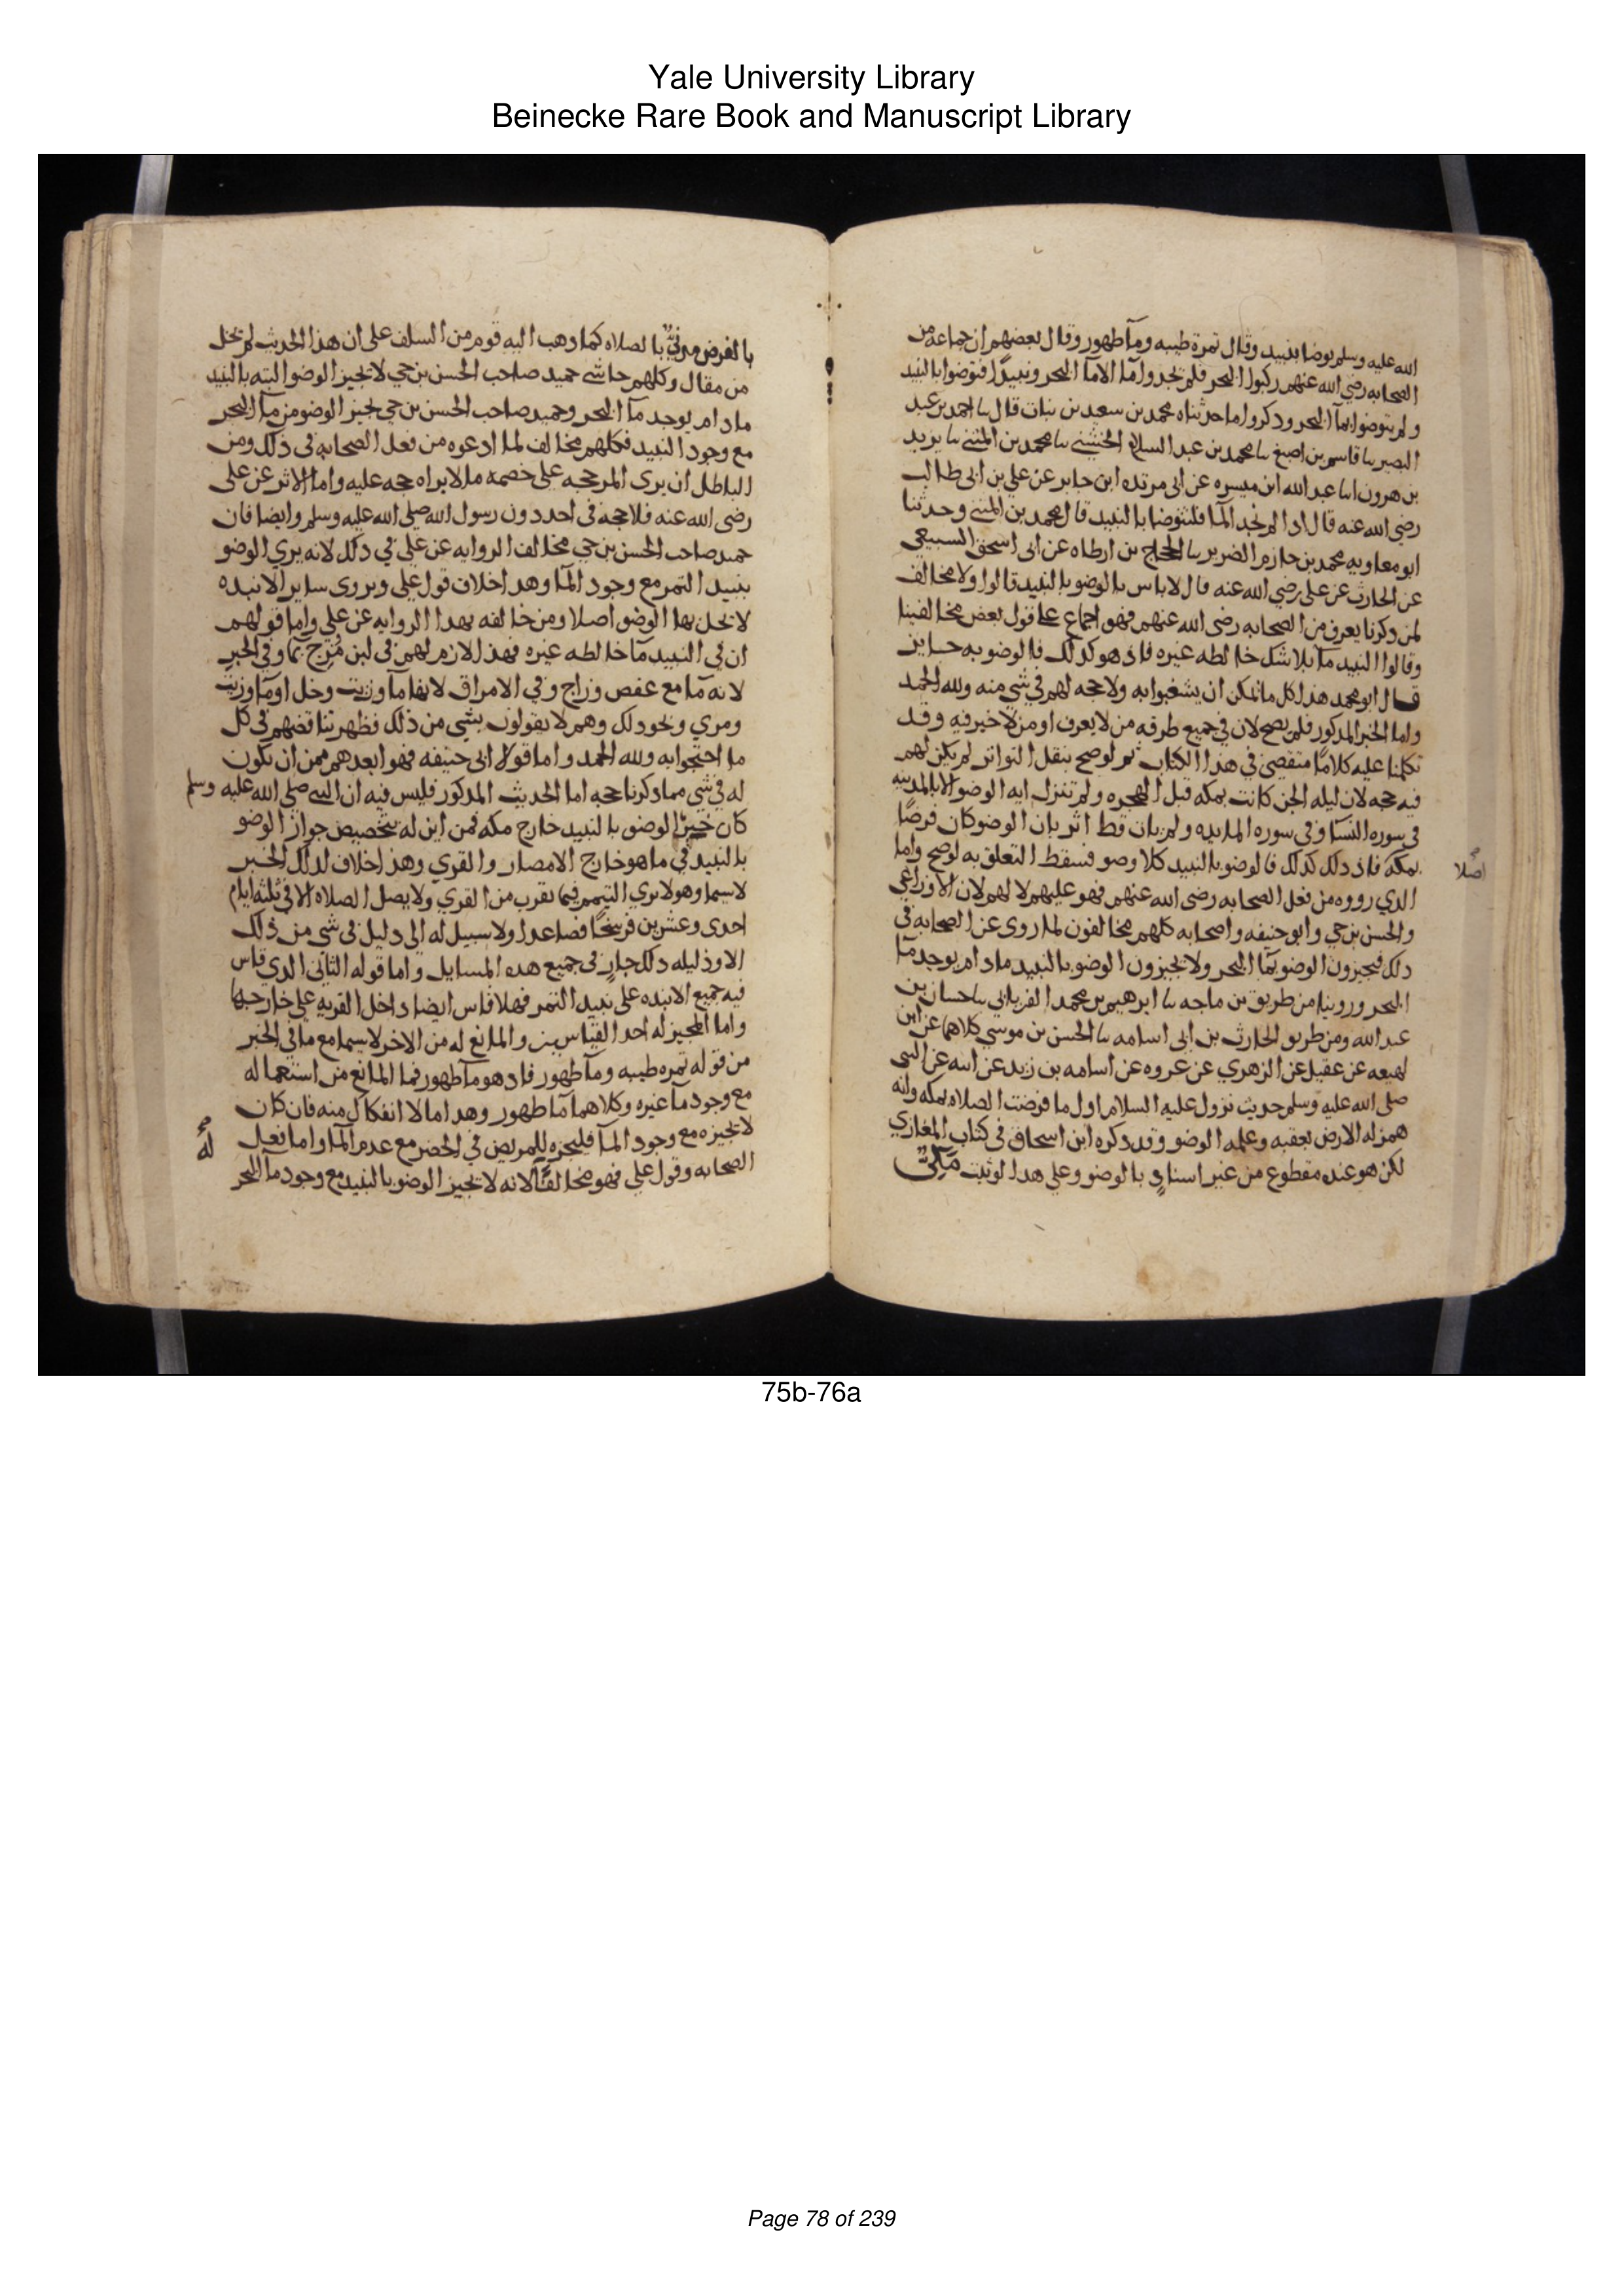 Yale University Library
Beinecke Rare Book and Manuscript Library
الله عليه وسلم توضا بنبيد وقال تمرة طيبه ومآ طهور وقال بعضهم ان جماعه من
الصحابه رضي الله عنهم ركبوا البحر فلم يجدوا مآ الا مآ البحر ونبيدًا فتوضوا بالنبيد
ولم يتوضوا بمآ البحر ودكروا ما حدثناه محمد بن سعيد بن نبات قال سا احمد بن عبد
البصير سا قاسم بن اصبغ سا محمد بن عبد السلام الخشني سا محمد بن المثنى سا يزيد
بن هرون انا عبد الله ابن ميسره عن ابي مرتده ابن جابر عن علي بن ابى طالب
رضي الله عنه قال ادا لم تجد المآ فلتتوضا بالنبيد قال محمد بن المثنى وحدثنا
ابو معاويه محمد بن حازم الضرير سا الحجاج بن ارطاه عن ابى اسحق السبيعي
عن الحارث عن على رضي الله عنه قال لا باس بالوضو بالنبيد قالوا ولا مخالف
لمن دكرنا يعرف من الصحابه رضى الله عنهم فهو اجماع على قول بعض مخالفينا
وقالوا النبيد مآ بلا شك خالطه غيره فاذ هو كدلك فالوضو به جايز
قال ابو محمد هدا كل ما يمكن ان يشغبوا به ولا حجه لهم في شي منه ولله الحمد
واما الخبر المدكور فلم يصح لان في جميع طرقه من لا يعرف او من لا خير فيه وقد
تكلمنا عليه كلامًا متقصى في هدا الكتاب ثم لو صح بنقل التواتر لم يكن لهم
فيه حجه لان ليله الجن كانت بمكه قبل الهجره ولم تنزل ايه الوضو الا بالمدينه
فى سوره النسآ وفى سوره المايده ولم يات قط اثر بان الوضو كان فرضًا
بمكه فاذ دلك كدلك فالوضو بالنبيد كلا وضو فسقط التعلق به لو صح واما
اصلا
الدي رووه من فعل الصحابه رضى الله عنهم فهو عليهم لا لهم لان الاوزاعي
والحسن بن حي وابو حنيفه واصحابه كلهم مخالفون لما روى عن الصحابه فى
دلك فيجيزون الوضو بمآ البحر ولا يجيزون الوضو بالنبيد ما دام يوجد مآ
البحر وروينا من طريق بن ماجه سا ابرهيم بن محمد الفريابي سا حسان بن
عبد الله ومن طريق الحارث بن ابى اسامه سا الحسن بن موسي كلاهما عن ابن
لهيعه عن عقيل عن الزهري عن عروه عن اسامه بن زيد عن ابيه عن النبى
صلى الله عليه وسلم حديث نزول عليه السلام اول ما فرضت الصلاه بمكه وانه
همز له الارض بعقبه وعلمه الوضو وقد دكره ابن اسحاق فى كتاب المغازي
لكن هو عنده مقطوع من غير اسناد بالوضو وعلي هدا لو ثبت مكيٌّ
بالفرض مدنيٌّ بالصلاه كما دهب اليه قوم من السلف على ان هدا الحديث لم يخل
من مقال وكلهم حاشى حميد صاحب الحسن بن حي لا يجيز الوضو البته بالنبيد
ما دام يوجد مآ البحر وحميد صاحب الحسن بن حي يجيز الوضو من مآ البحر
مع وجود النبيد فكلهم مخالف لما ادعوه من فعل الصحابه فى دلك ومن
الباطل ان يرى المر حجه على خصمه ما لا يراه حجه عليه واما الاثر عن على
رضى الله عنه فلا حجه فى احد دون رسول الله صلى الله عليه وسلم وايضا فان
حميد صاحب الحسن بن حي مخالف الروايه عن علي في دلك لانه يري الوضو
بنبيد التمر مع وجود المآ وهدا خلاف قول علي ويروى ساير الانبده
لا يحل بها الوضو اصلا ومن خالفه بهدا الروايه عن علي واما قولهم
ان في النبيد مآ خالطه غيره فهدا لازم لهم فى لبن مُزج بمآ وفي الحبر
لانه مآ مع عفص وزاج وفي الامراق لانها مآ وزيت وخل او مآ وزيت
ومري ونحو دلك وهم لا يقولون بشي من ذلك فظهر تناقضهم فى كل
ما احتجوا به ولله الحمد واما قول ابى حنيفه فهو ابعدهم من ان يكون
له في شي مما دكرنا حجه اما الحديث المدكور فليس فيه ان النبى صلى الله عليه وسلم
كان حين الوضو بالنبيد خارج مكه فمن اين له بتخصيص جواز الوضو
بالنبيد في ما هو خارج الامصار والقري وهدا خلاف لدلك الخبر
لا سيما وهو لا يري التيمم فيما يقرب من القري ولا يصل الصلاه الا فى ثلثه ايام
احدى وعشرين فرسخًا فصاعدا ولا سبيل له الى دليل فى شي من ذلك
الا ودليله دلك جارٍ فى جميع هده المسايل واما قوله الثاني الدي قاس
فيه جميع الانبده على نبيد التمر فهلا قاس ايضا داخل القريه علي خارجها
واما المجيز له احد القياسين والمانع له من الاخر لا سيما مع ما في الخبر
من قوله تمره طيبه ومآ طهور فاد هو مآ طهور فما المانع من استعماله
مع وجود مآ غيره وكلاهما مآ طهور وهدا ما لا انفكاك منه فان كان
له
لا يجيزه مع وجود المآ فليجزه للمريض في الحضر مع عدم المآ واما فعل
الصحابه وقول علي فهو مخالف لانه لا يجيز الوضو بالنبيد مع وجود مآ البحر
75b-76a
Page 78 of 239